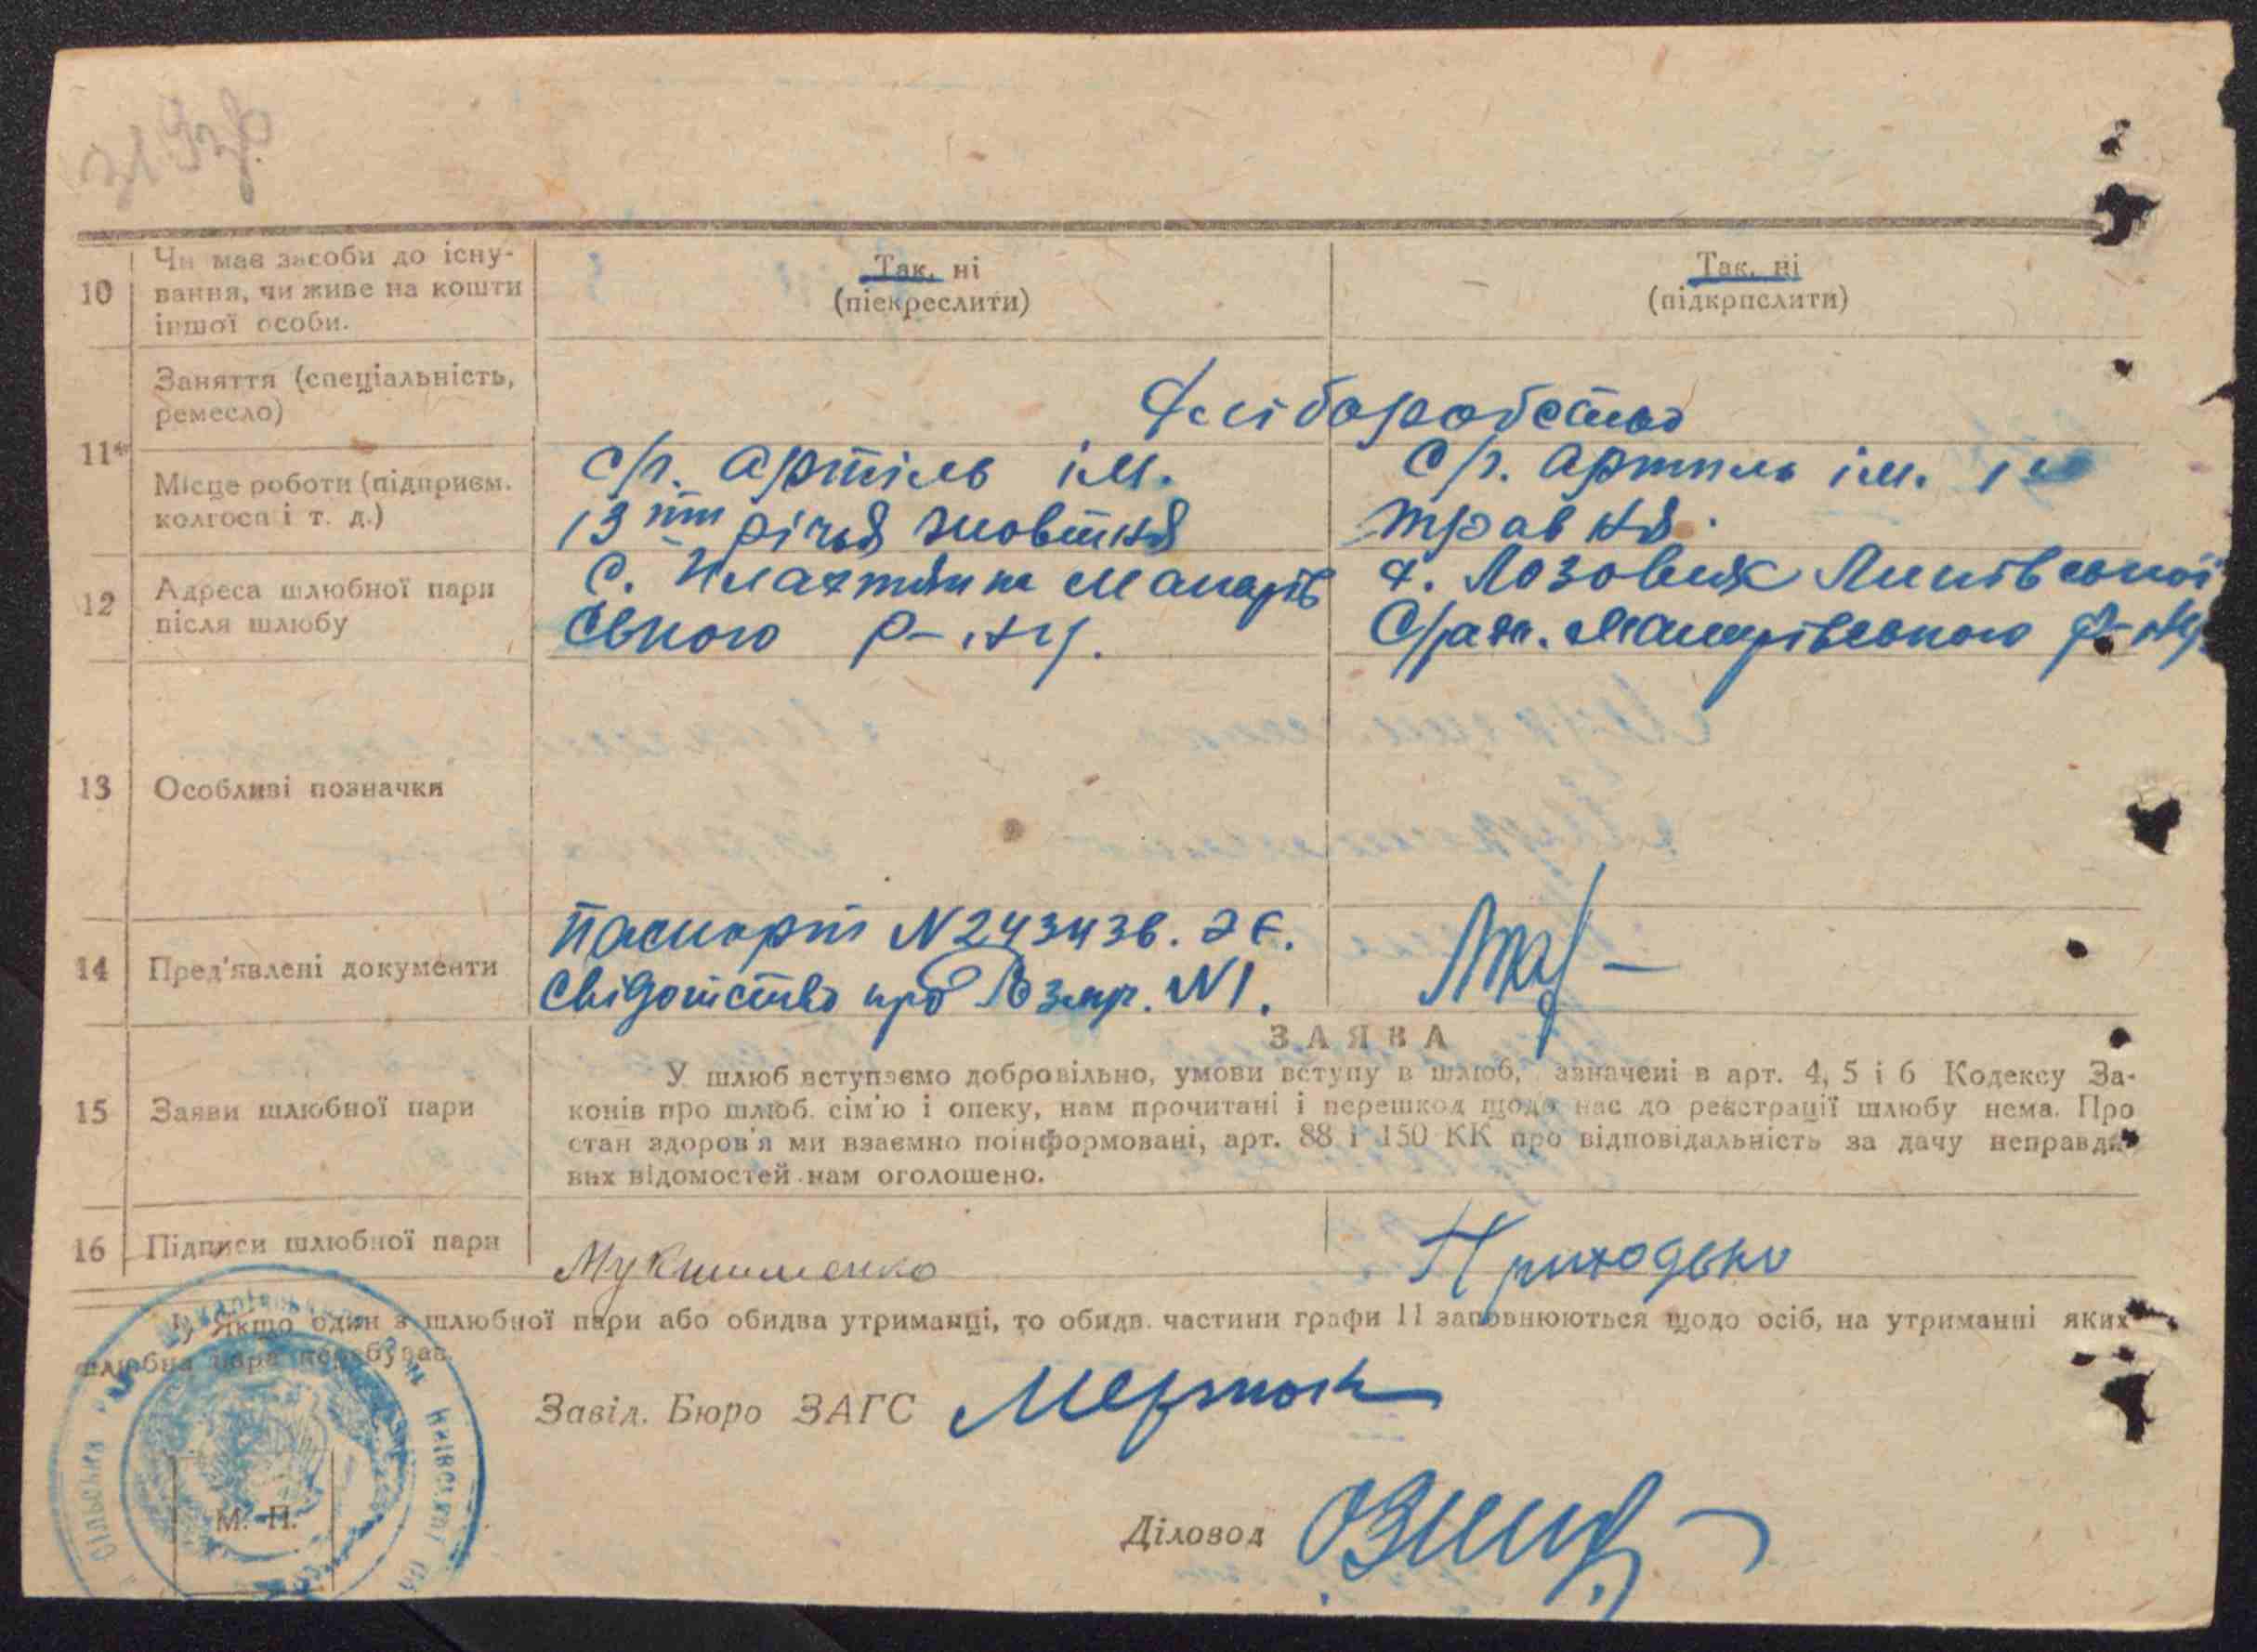 10
Чи має засоби до існу-
вання, чи живе на кошти
іншої особи.
Так, ні
(піекреслити)
Так, ні
(підкрпслити)
11*
Заняття (спеціальність,
ремесло)
Хліборобство
Місце роботи (підприєм.
колгосп і т. д.)
с/г. артіль ім.
13 ти річчя жовтня
с/г. артиль ім. 1го
травня.
12
Адреса шлюбної пари
після шлюбу
с. Плахтянка Макарів
ського р-ну.
х. Лозовик Липівської
с/ради. Макарівського р-ну
13
Особливі позначки
14
Пред'явлені документи
Паспорт N243436.
Свідотство про N1.
15
Заяви шлюбної пари
ЗАЯВА
У шлюб вступаємо добровільно, умови вступу в шлюб, зазначені в арт. 4, 5 і 6 Кодексу За-
конів про шлюб, сім'ю і опеку, нам прочитані і перешкод щодо нас до реєстрації шлюбу нема. Про
стан здоров'я ми взаємно поінформовані, арт. 88 і 150 КК про відповідальність за дачу неправди-
вих відомостей нам оголошено.
16
Підписи шлюбної пари
Приходько
Якщо один з шлюбної пари або обидва утриманці, то обидв. частини графи 11 заповнюються щодо осіб, на утриманні яких
шлюбна пара перебуває.
Завід. Бюро ЗАГС
Діловод
М. П.
Сільська
Київської